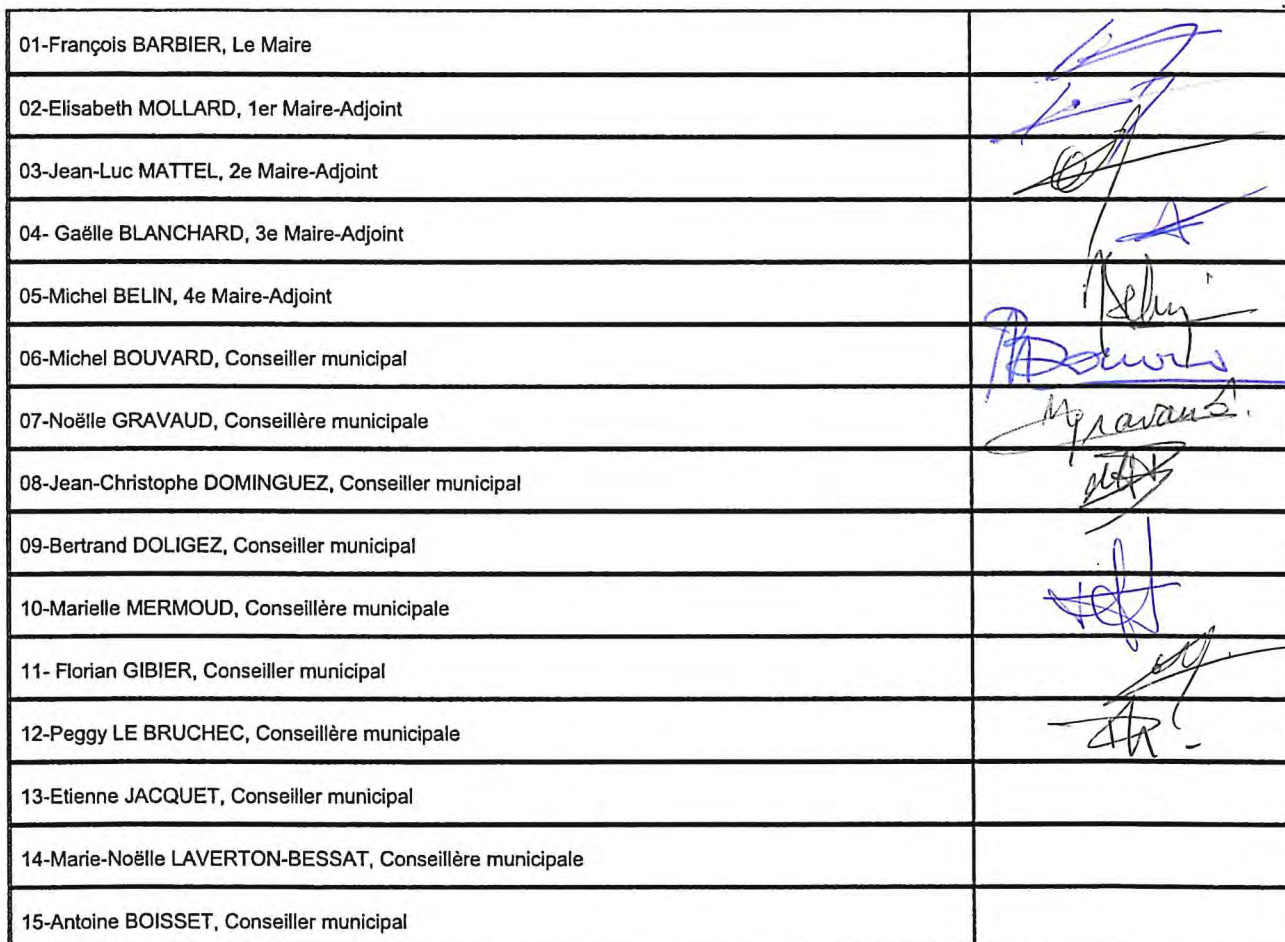 01-François BARBIER, Le Maire
02-Elisabeth MOLLARD, 1er Maire-Adjoint
03-Jean-Luc MATTEL, 2e Maire-Adjoint
04- Gaëlle BLANCHARD, 3e Maire-Adjoint
05-Michel BELIN, 4e Maire-Adjoint
Belin
06-Michel BOUVARD, Conseiller municipal
07-Noëlle GRAVAUD, Conseillère municipale
08-Jean-Christophe DOMINGUEZ, Conseiller municipal
09-Bertrand DOLIGEZ, Conseiller municipal
10-Marielle MERMOUD, Conseillère municipale
11- Florian GIBIER, Conseiller municipal
12-Peggy LE BRUCHEC, Conseillère municipale
13-Etienne JACQUET, Conseiller municipal
14-Marie-Noëlle LAVERTON-BESSAT, Conseillère municipale
15-Antoine BOISSET, Conseiller municipal